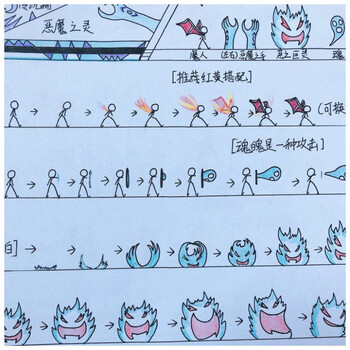 恶魔之灵
魔人 (左右)恶魔之手 恶之巨灵 魂
[推荐红黄搭配]
(可换
[魂魄是一种攻击]
白]